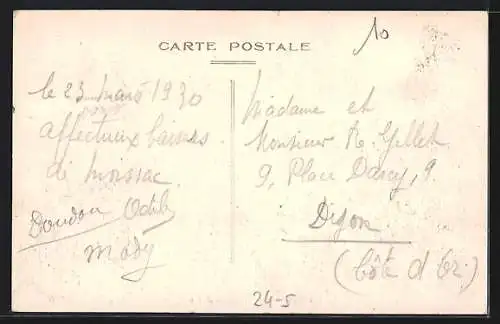 CARTE POSTALE
10
le 23 mars 1930
affectueux baisers
de Moissac
Doudou Odile
Mady
Madame et
Monsieur R. Gellet
9, Place Darcy, 9.
Dijon
(Côte d'Or)
24-5